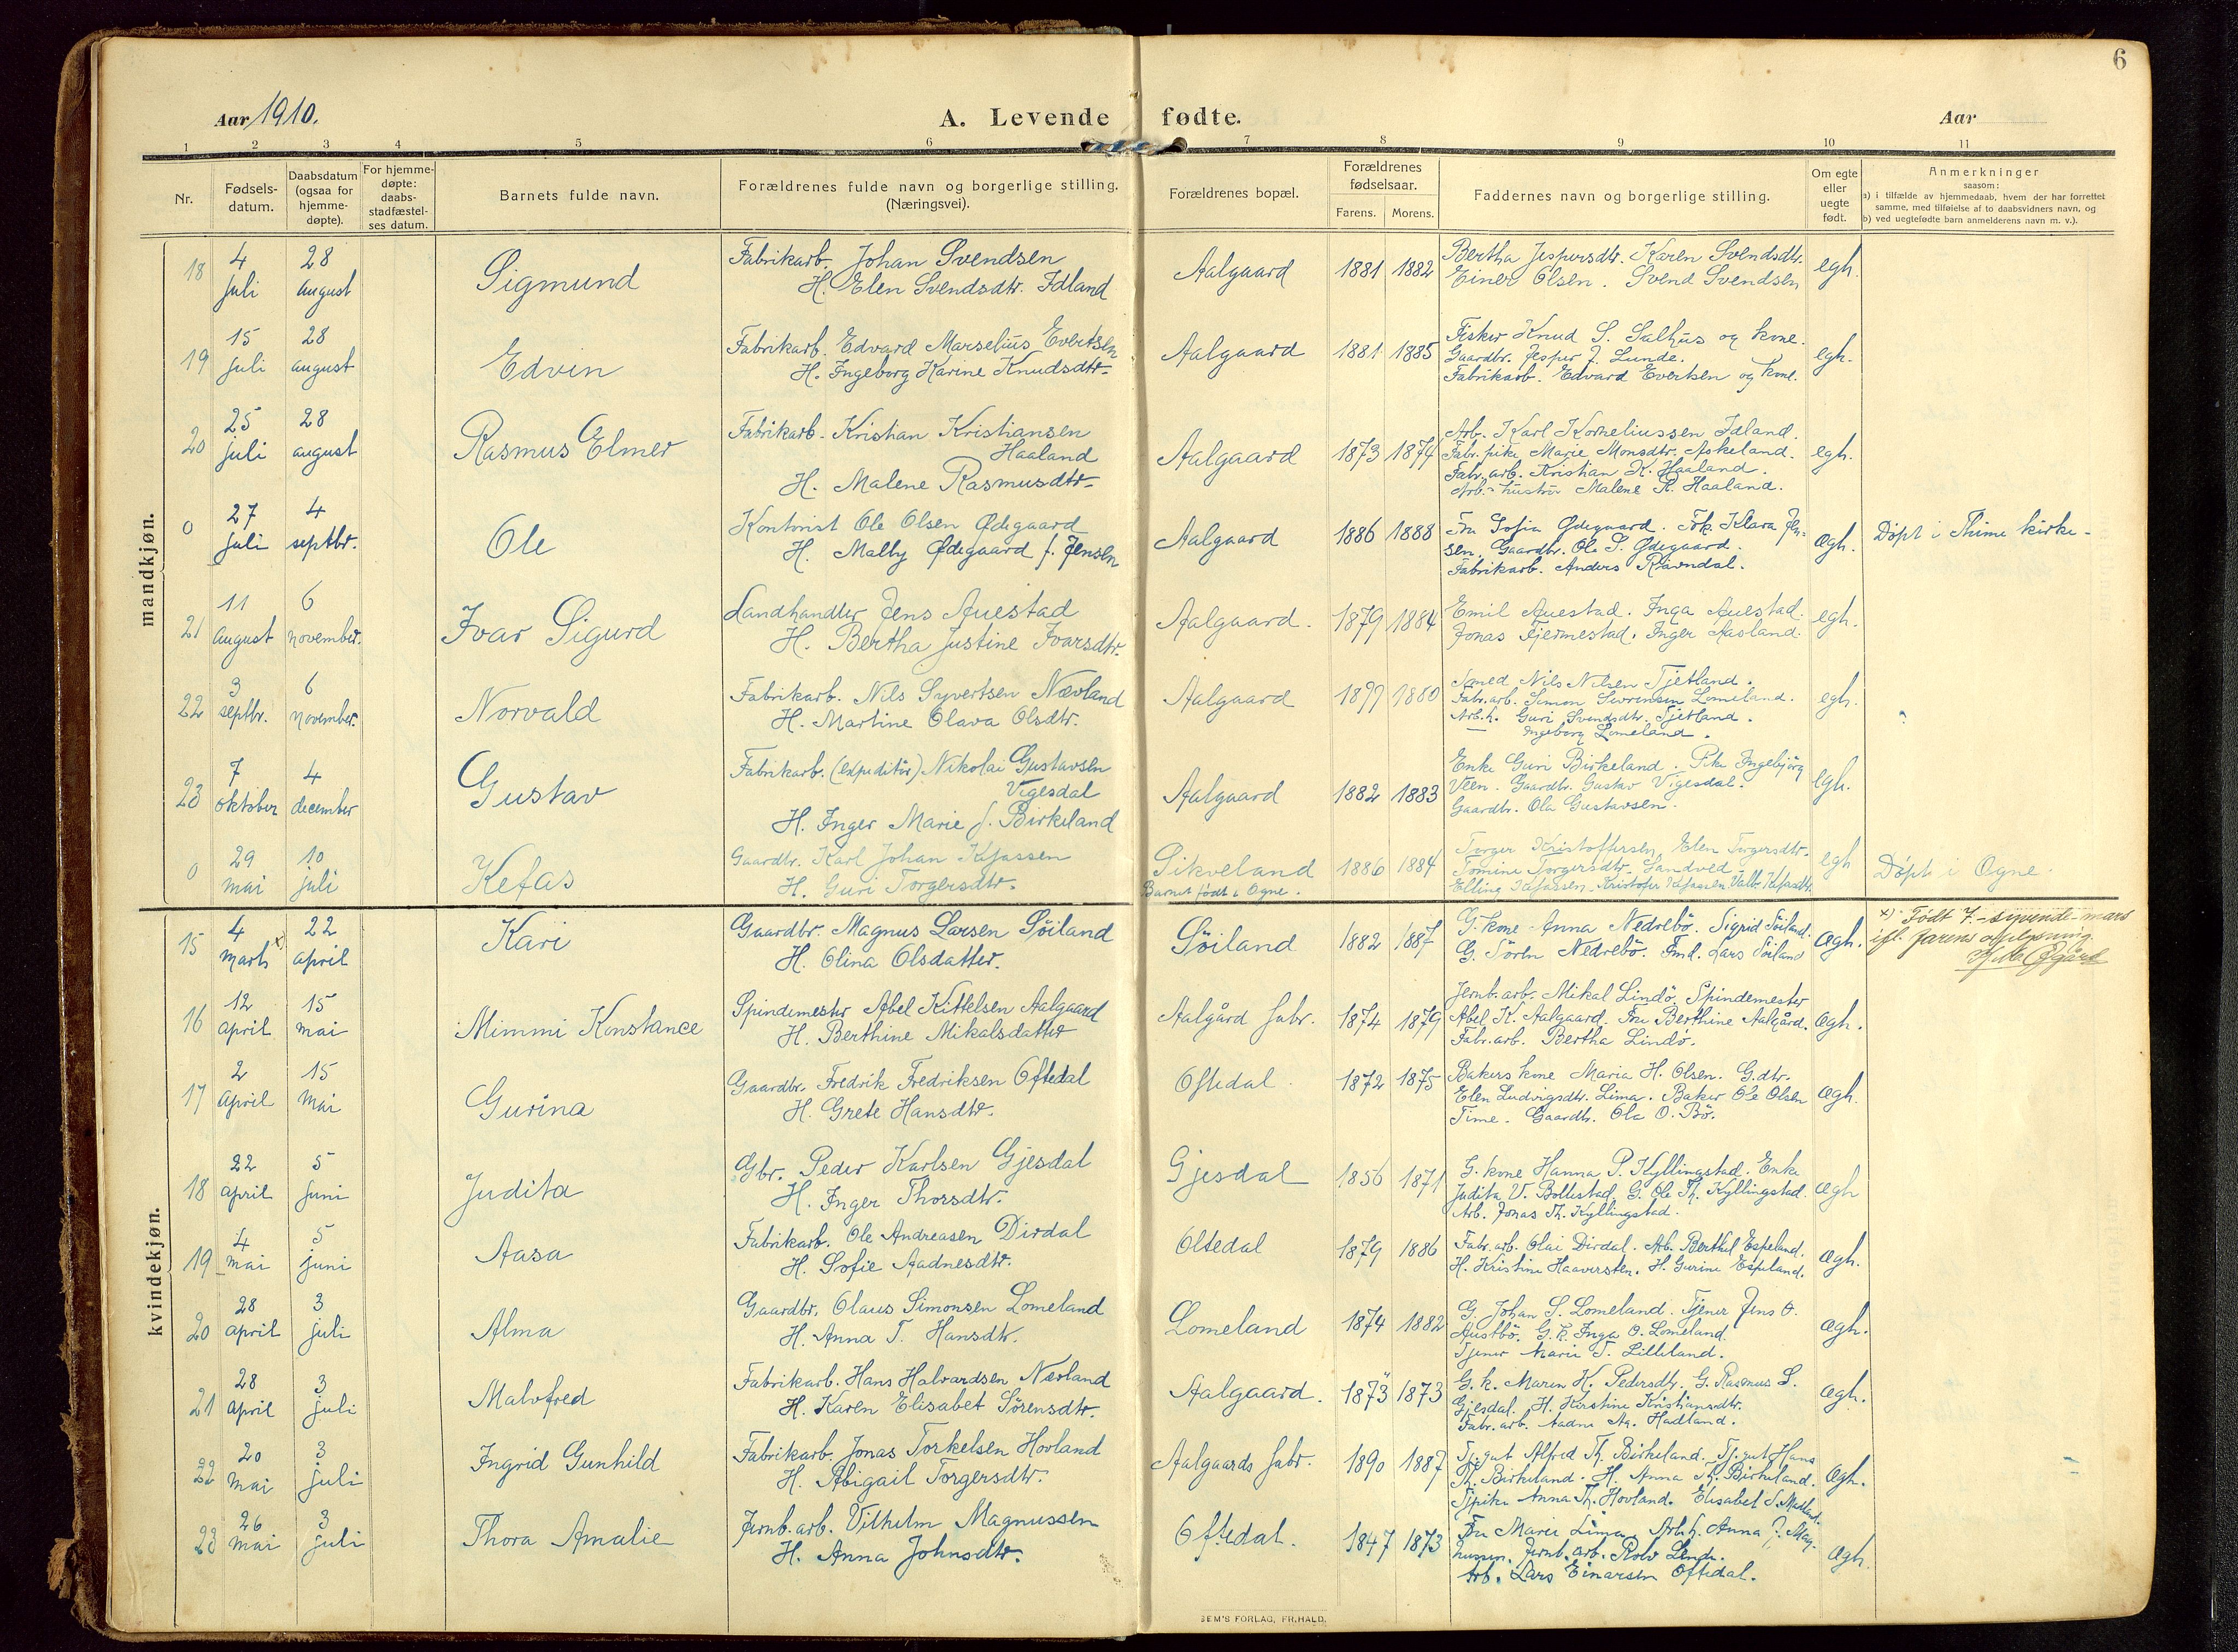 6
Aar 1910.
A. Levende fødte.
Aar
1 2 3 4 5 6 7 8 9 10 11
Nr.
Fødsels-
datum.
Daabsdatum
(ogsaa for
hjemme-
døpte).
For hjemme-
døpte:
daabs-
stadfæstel-
ses datum.
Barnets fulde navn.
Forældrenes fulde navn og borgerlige stilling.
(Næringsvei).
Forældrenes bopæl.
Forældrenes
fødselsaar.
Farens. Morens.
Faddernes navn og borgerlige stilling.
Om egte
eller
uegte
født.
Anmerkninger
saasom:
a) i tilfælde av hjemmedaab, hvem der har forrettet
samme, med tilføielse af to daabsvidners navn, og
b) ved uegtefødte barn anmelderens navn m. v.).
mandkjøn.
18
4 juli
28 august
Sigmund
Fabrikarb. Johan Svendsen
H. Elen Svendsdtr. Idland
Aalgaard
1881 1882
Bertha Jespersdtr. Karen Svendsdtr.
Einer Olsen. Svend Svendsen
egh.
19
15 juli
28 august
Edvin
Fabrikarb. Edvard Marselius Evertsen
H. Ingeborg Karine Knudsdtr.
Aalgaard
1881 1885
Fisker Knud S. Salhus og kone.
Gaardbr. Jesper J. Lunde.
Fabrikarb. Edvard Evertsen og kone.
egh.
20
25 juli
28 august
Rasmus Elmer
Fabrikarb. Kristian Kristiansen
Haaland
H. Malene Rasmusdtr.
Aalgaard
1873 1874
Arb. Karl Korneliussen Idland.
Fabr. pike Marie Monsdtr. Askeland.
Fabr. arb. Kristian K. Haaland.
Arb.-hustru Malene R. Haaland.
egh.
0
27 juli
4 septbr.
Ole
Kontorist Ole Olsen Ødegaard
H. Mally Ødegaard f. Jensen
Aalgaard
1886 1888
Fru Sofia Ødegaard. Frk. Klara Jen-
sen. Gaardbr. Ole S. Ødegaard.
Fabrikarb. Anders Ravndal.
ægh.
Døpt i Thime kirke.
21
11 august
6 november.
Ivar Sigurd
Landhandler Jens Auestad
H. Bertha Justine Ivarsdtr.
Aalgaard.
1879 1884
Emil Auestad. Inga Auestad.
Jonas Fjermestad. Inger
egh.
22
3 septbr.
6 november.
Norvald
Fabrikarb. Nils Syvertsen Nævland
H. Martine Olava Olsdtr.
Aalgaard
1877 1880
Smed Nils Nilsen Tjetland.
Fabr. arb. Simon Lomeland.
Arb. h. Guri Svendsdtr. Tjetland.
— Ingeborg Lomeland.
egh.
23
7 oktober
4 december
Gustav
Fabrikarb. (expeditør) Nikolai Gustavsen
Vigesdal
H. Inger Marie f. Birkeland
Aalgaard
1882 1883
Enke Guri Birkeland. Pike Ingebjörg
Veen. Gaardbr. Gustav Vigesdal.
Gaardbr. Ola Gustavsen.
egh.
0
29 mai
10 juli
Kefas
Gaardbr. Karl Johan Kefassen
H. Guri Torgersdtr.
Sikveland
Barnet født i Ogne.
1886 1884
Torger Kristoffersen, Elen Torgersdtr.
Tomine Torgersdtr. Sandved.
Elling Kefassen. Kristofer Kefassen Valb. Kefasdtr.
egh
Döpt i Ogne.
kvindekjøn.
15
4 marts x)
22 april
Kari
Gaardbr. Magnus Larsen Söiland
H. Olina Olsdatter.
Söiland
1882 1887
G. kone Anna Nedrebö. Sigrid Söiland.
G. Sören Nedrebö. Fmd. Lars Söiland
ægh.
x) Født 7.-syvende-mars
ifl. farens oplysning.
16
12 april
15 mai
Mimmi Konstance
Spindemester Abel Kittelsen Aalgaard
H. Berthine Mikalsdatter
Aalgård fabr.
1874 1879
Jernb. arb. Mikal Lindö. Spindemester
Abel K. Aalgaard. Fru Berthine Aalgård.
Fabr. arb. Bertha Lindö.
ægh.
17
2 april
15 mai
Gurina
Gaardbr. Fredrik Fredriksen Oftedal
H. Grete Hansdtr.
Oftedal.
1872 1875
Bakers kone Maria H. Olsen. G. dtr.
Elen Ludvigsdtr. Lima. Baker Ole Olsen
Time. Gaardbr. Ole O. Bö.
ægh.
18
22 april
5 juni
Judita
Gbr. Peder Karlsen Gjesdal
H. Inger Thorsdtr.
Gjesdal
1856 1871
G. kone Hanna P. Kyllingstad. Enke
Judita V. Bollestad. G. Ole Th. Kyllingstad.
Arb. Jonas Th. Kyllingstad.
ægh
19
4 mai
5 juni
Aasa
Fabrikarb. Ole Andreasen Dirdal
H. Sofie Aadnesdtr.
Oltedal
1879 1886
Fabr. arb. Olai Dirdal. Arb. Berthel Espeland.
H. Kristine Haaversten. H. Gurine Espeland.
ægh.
20
28 april
3 juli
Alma
Gaardbr. Olaus Simonsen Lomeland
H. Anna T. Hansdtr.
Lomeland
1874 1882
G. Johan S. Lomeland. Tjener Jens O.
Austbö. G. k. Inga O. Lomeland.
Tjener Marie T. Lilleland.
ægh.
21
28 april
3 juli
Malvfred
Fabrikarb. Hans Halvardsen Nævland
H. Karen Elisabet Sörensdtr.
Aalgaard.
1873 1873
G. k. Maren K. Pedersdtr. G. Rasmus S.
Gjesdal. H. Kirstine Kristiansdtr.
Fabr. arb. Aadne Aa. Hadland.
ægh.
22
20 mai
3 juli
Ingrid Gunhild
Fabrikarb. Jonas Torkelsen Hovland
H. Abigail Torgersdtr.
Aalgaards fabr.
1890 1887
Tj. gut Alfred Th. Birkeland. Tj. gut Hans
Th. Birkeland. H. Anna Th. Birkeland.
Tjpike Anna Th. Hovland. Elisabet S.
ægh.
23
26 mai
3 juli
Thora Amalie
Jernb. arb. Vilhelm Magnussen
H. Anna Johnsdtr.
Oftedal.
1847 1873
Fru Marie Lima. Arb. h. Anna J. Mag-
nussen. Jernb. arb. Rolv Lende.
Arb. Lars Einarsen Oftedal.
ægh.
SEM'S FORLAG, FR.HALD.